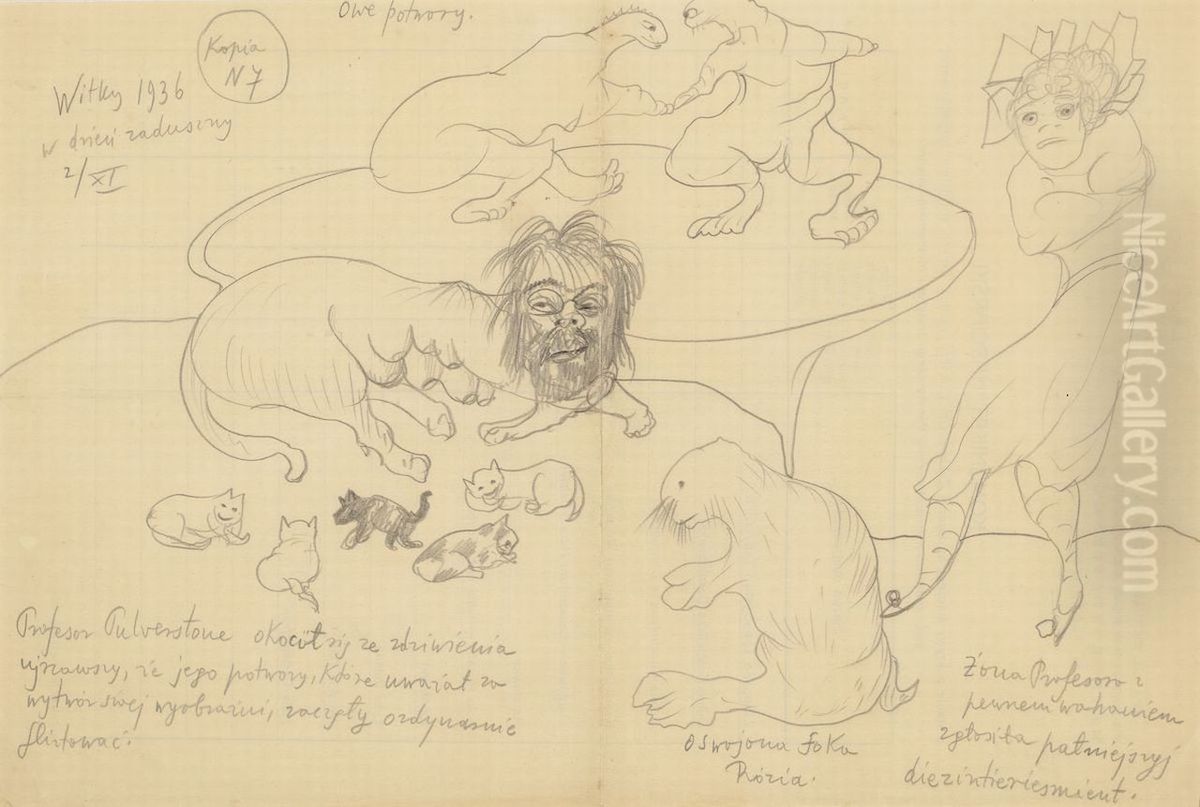 Owe potwory.
Kopia
N 7
Witky 1936
w dzień zaduszny
2/XI
Profesor Pulverstone okocił się ze zdziwienia
ujrzawszy, że jego potwory, które uważał za
wytwór swej wyobraźni, zaczęły ordynarnie
flirtować.
Oswojona foka
Rózia.
Żona Profesora z
pewnem wahaniem
zgłosiła pałniejszyj
diezintieriesmient.
NiceArtGallery.com